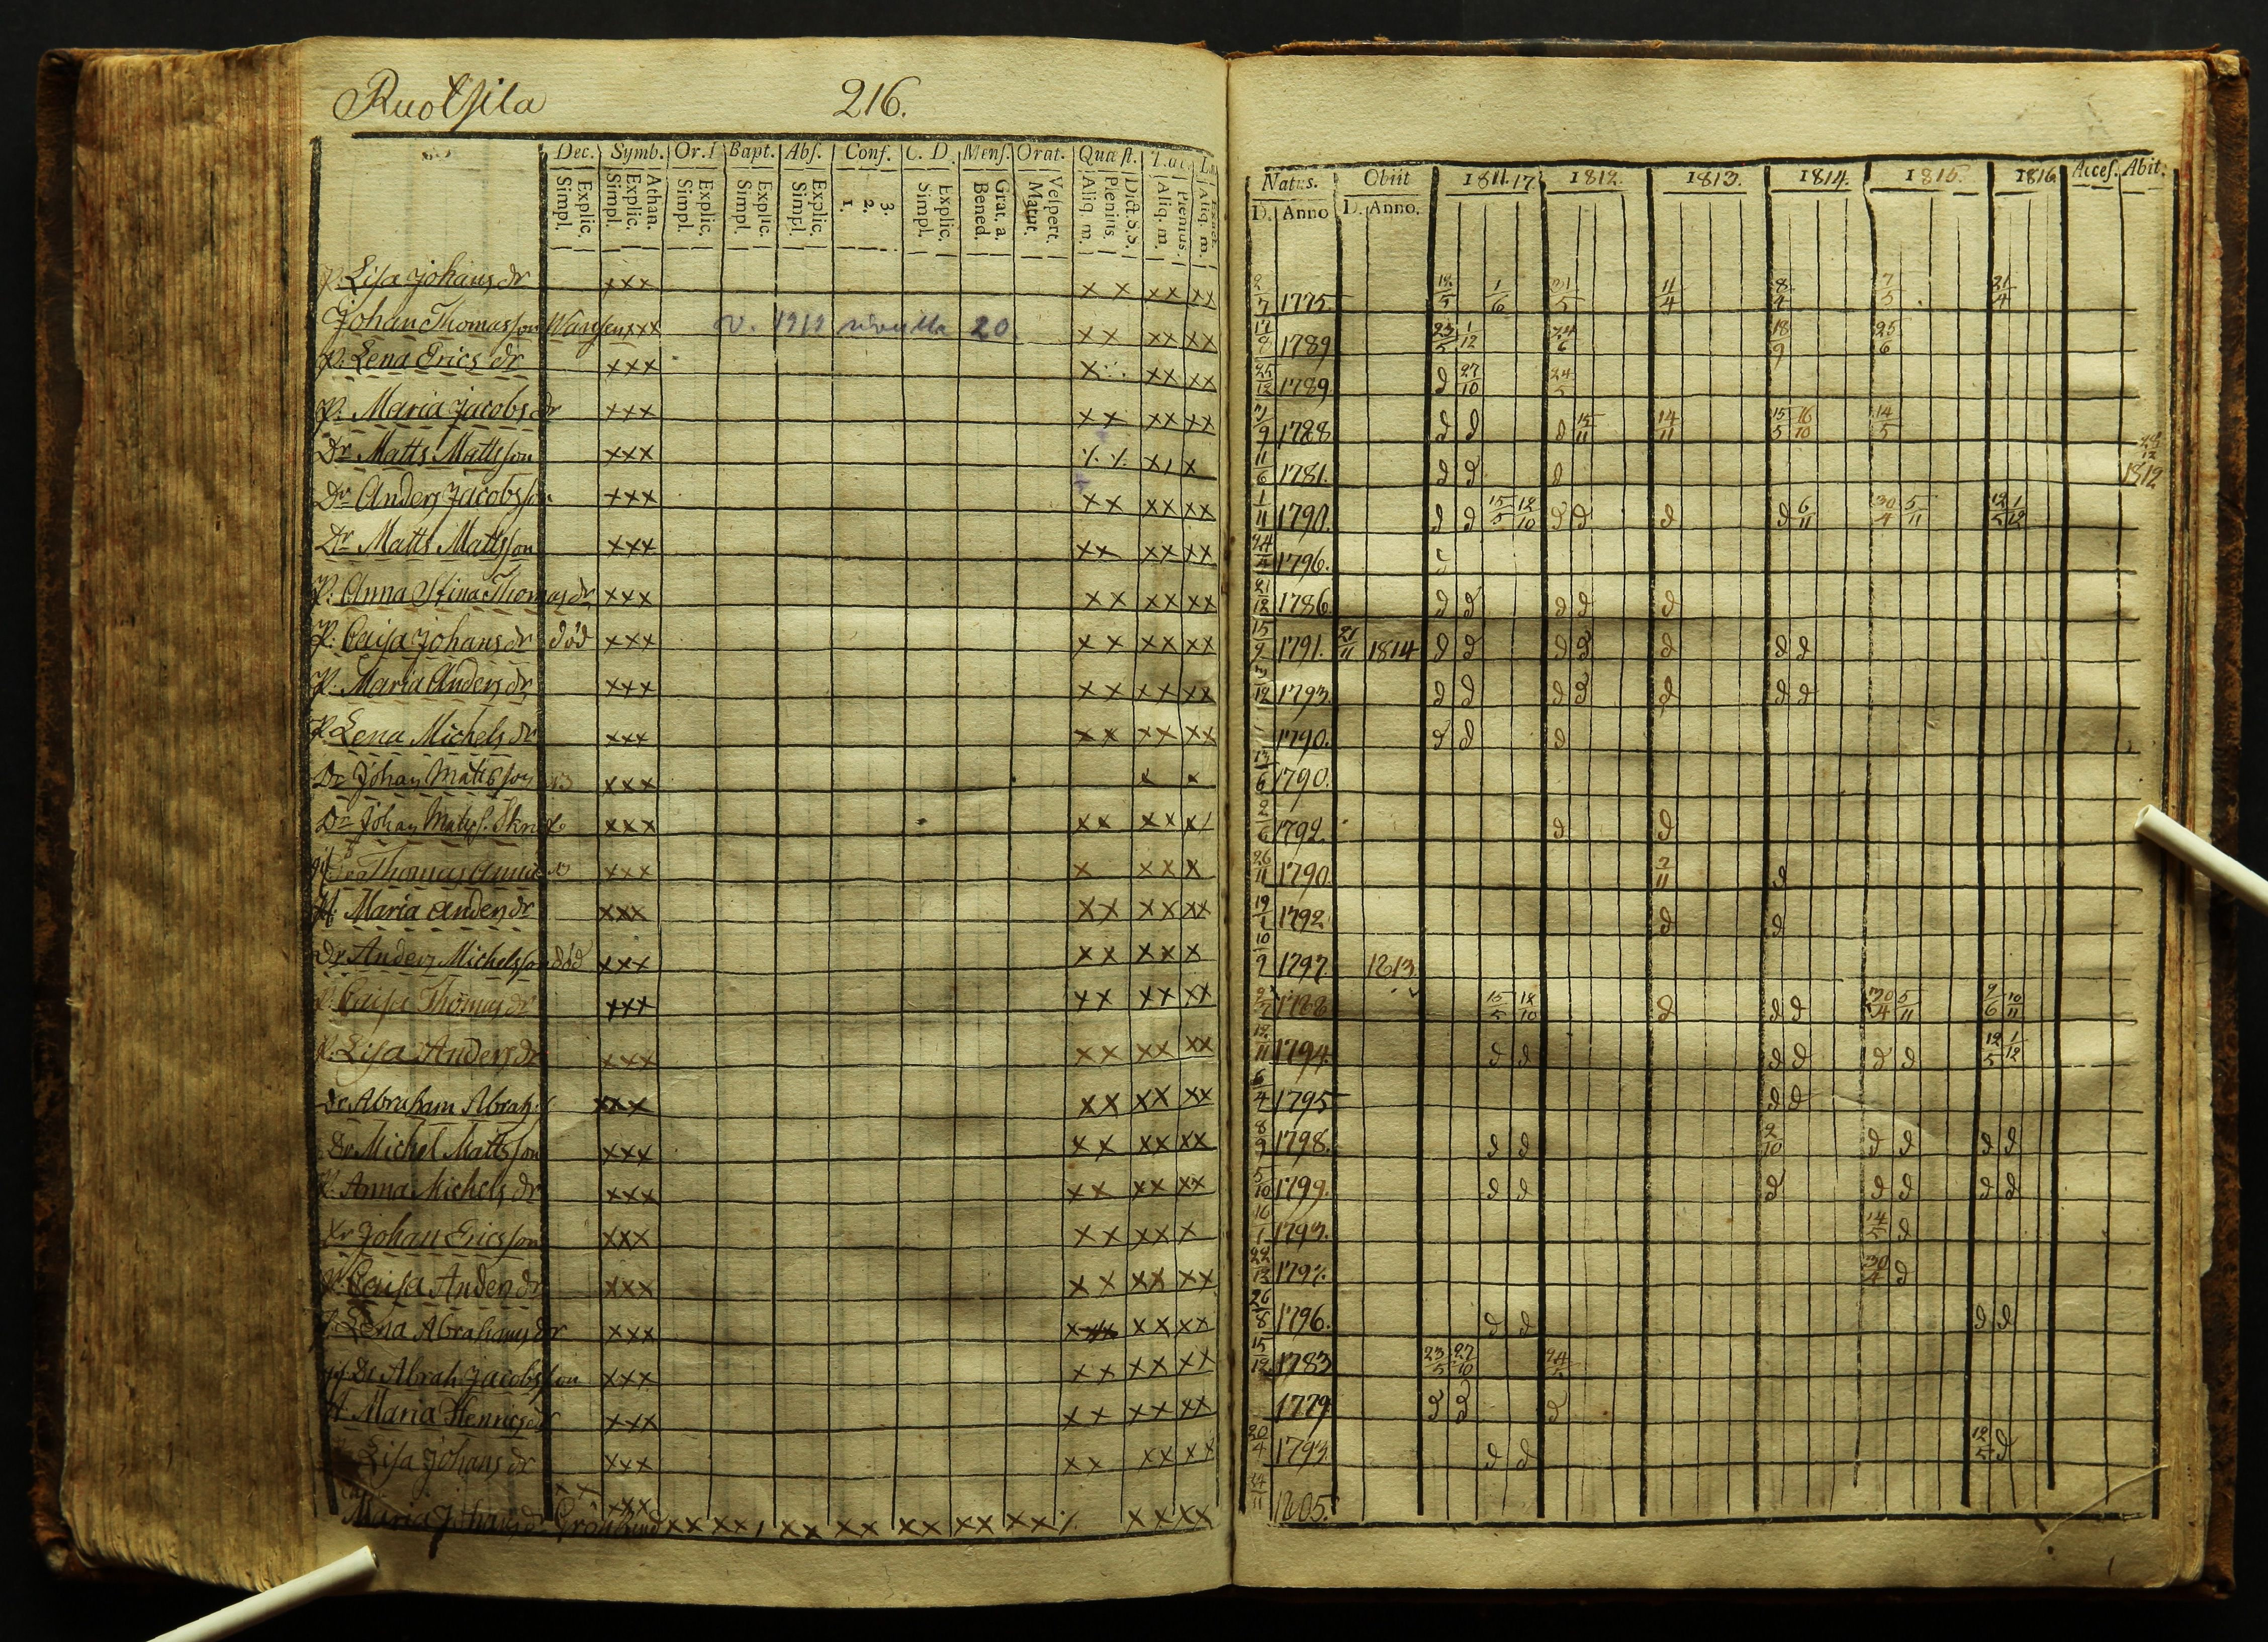 Ruotsila 216.
Dec. Symb. Or. Bapt. Abs. Conf. C. D. Mens. Orat. Quæst.
Explic. Simpl. Athan. Explic. Simpl. Explic. Simpl. Explic. Simpl. Explic. Simpl. 3. 2. 1. Explic. Simpl. Grat. a. Bened. Vespert. Matut. Dict. S.S. Plenius. Aliq. m. Plenius. Aliq. m. Aliq. m.
Natus. Obiit 1811. 17. 1812. 1813. 1814. 1815. 1816 Acces. Abit.
D. Anno D. Anno.
P. Lisa Johans dr xxx x x xx xx 1775 12/5 1/6 21/5 11/4 8/4 7/5 21/4
Johan Thomasson Wansen xxx v. 1912 sivulla 20 x x xx xx 1789 23/5 1/12 24/6 18/9 25/6
p. Lena Erics dr xxx xx xx 25/12 1789 d 27/10 24/5
p. Maria Jacobs dr xxx xx xx xx 1788 d d d 15/11 14/11 15/5 16/10 14/5
Dr Matts Mattsson xxx 11/6 1781. d d d 1812
Dr Anders Jacobsson xxx xx xx xx 1/11 1790. d d 15/5 12/10 d d d d 6/11 30/4 5/11 12/5 1/12
Dr Matts Mattsson xxx xx xx xx 1796.
P. Anna Stina Thomas dr xxx xx xx xx 21/12 1786 d d d d d
P. Caisa Johans dr död xxx x x xx xx 1791. 21/11 1814 d d d d d d d
P. Maria Anders dr xxx x x xx xx 1793 d d d d d d d
P Lena Michels dr xxx xx xx xx 1790. d d d
Dr Johan Matsson xxx x x 13/6 1790.
Dr Johan Matss. xxx xx xx 2/6 1792. d d
Thomas xxx x xx x 26/11 1790 d
H. Maria Anders dr xxx xx xx xx 19/1 1792 d d
Dr Anders Michelsson död xxx xx xx x 1797 1813.
P. Caisa Thomas dr xxx xx xx xx 15/5 18/10 d d d 30/4 5/11 2/6 10/11
P. Lisa Anders dr xxx xx xx xx 12/11 1794. d d d d d d 12/5 1/12
Dr Abraham Abrah. xxx xx xx xx 6/4 1795 d d
Dr Michel Mattsson xxx xx xx xx 8/9 1798. d d 2/10 d d d d
P. Anna Michels dr xxx xx xx xx 5/10 1799. d d d d d d d
Dr Johan Ericsson xxx xx xx x 1793. 14/5 d
P. Caisa Anders dr xxx x x xx xx 30/4 d
P. Lena Abrahams dr xxx xx xx 26/8 1796. d d d d
gif Dr Abrah Jacobsson xxx xx xx xx 15/12 1783 23/5 27/10 24/5
H Maria Henrics dr xxx xx xx xx 1779 d d d
Lisa Johans dr xxx xx xx xx 20/4 1793 d d 12/5 d
Maria Johans d xxx xx xx xx xx xx xx xx xx xx 1805.